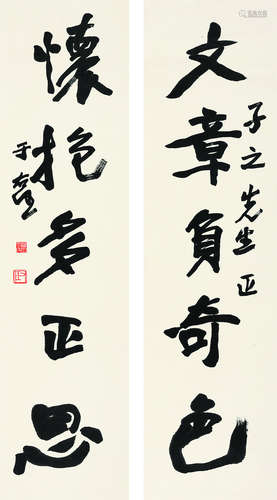 文章負奇色
子之先生正
懷抱多正思
于右任